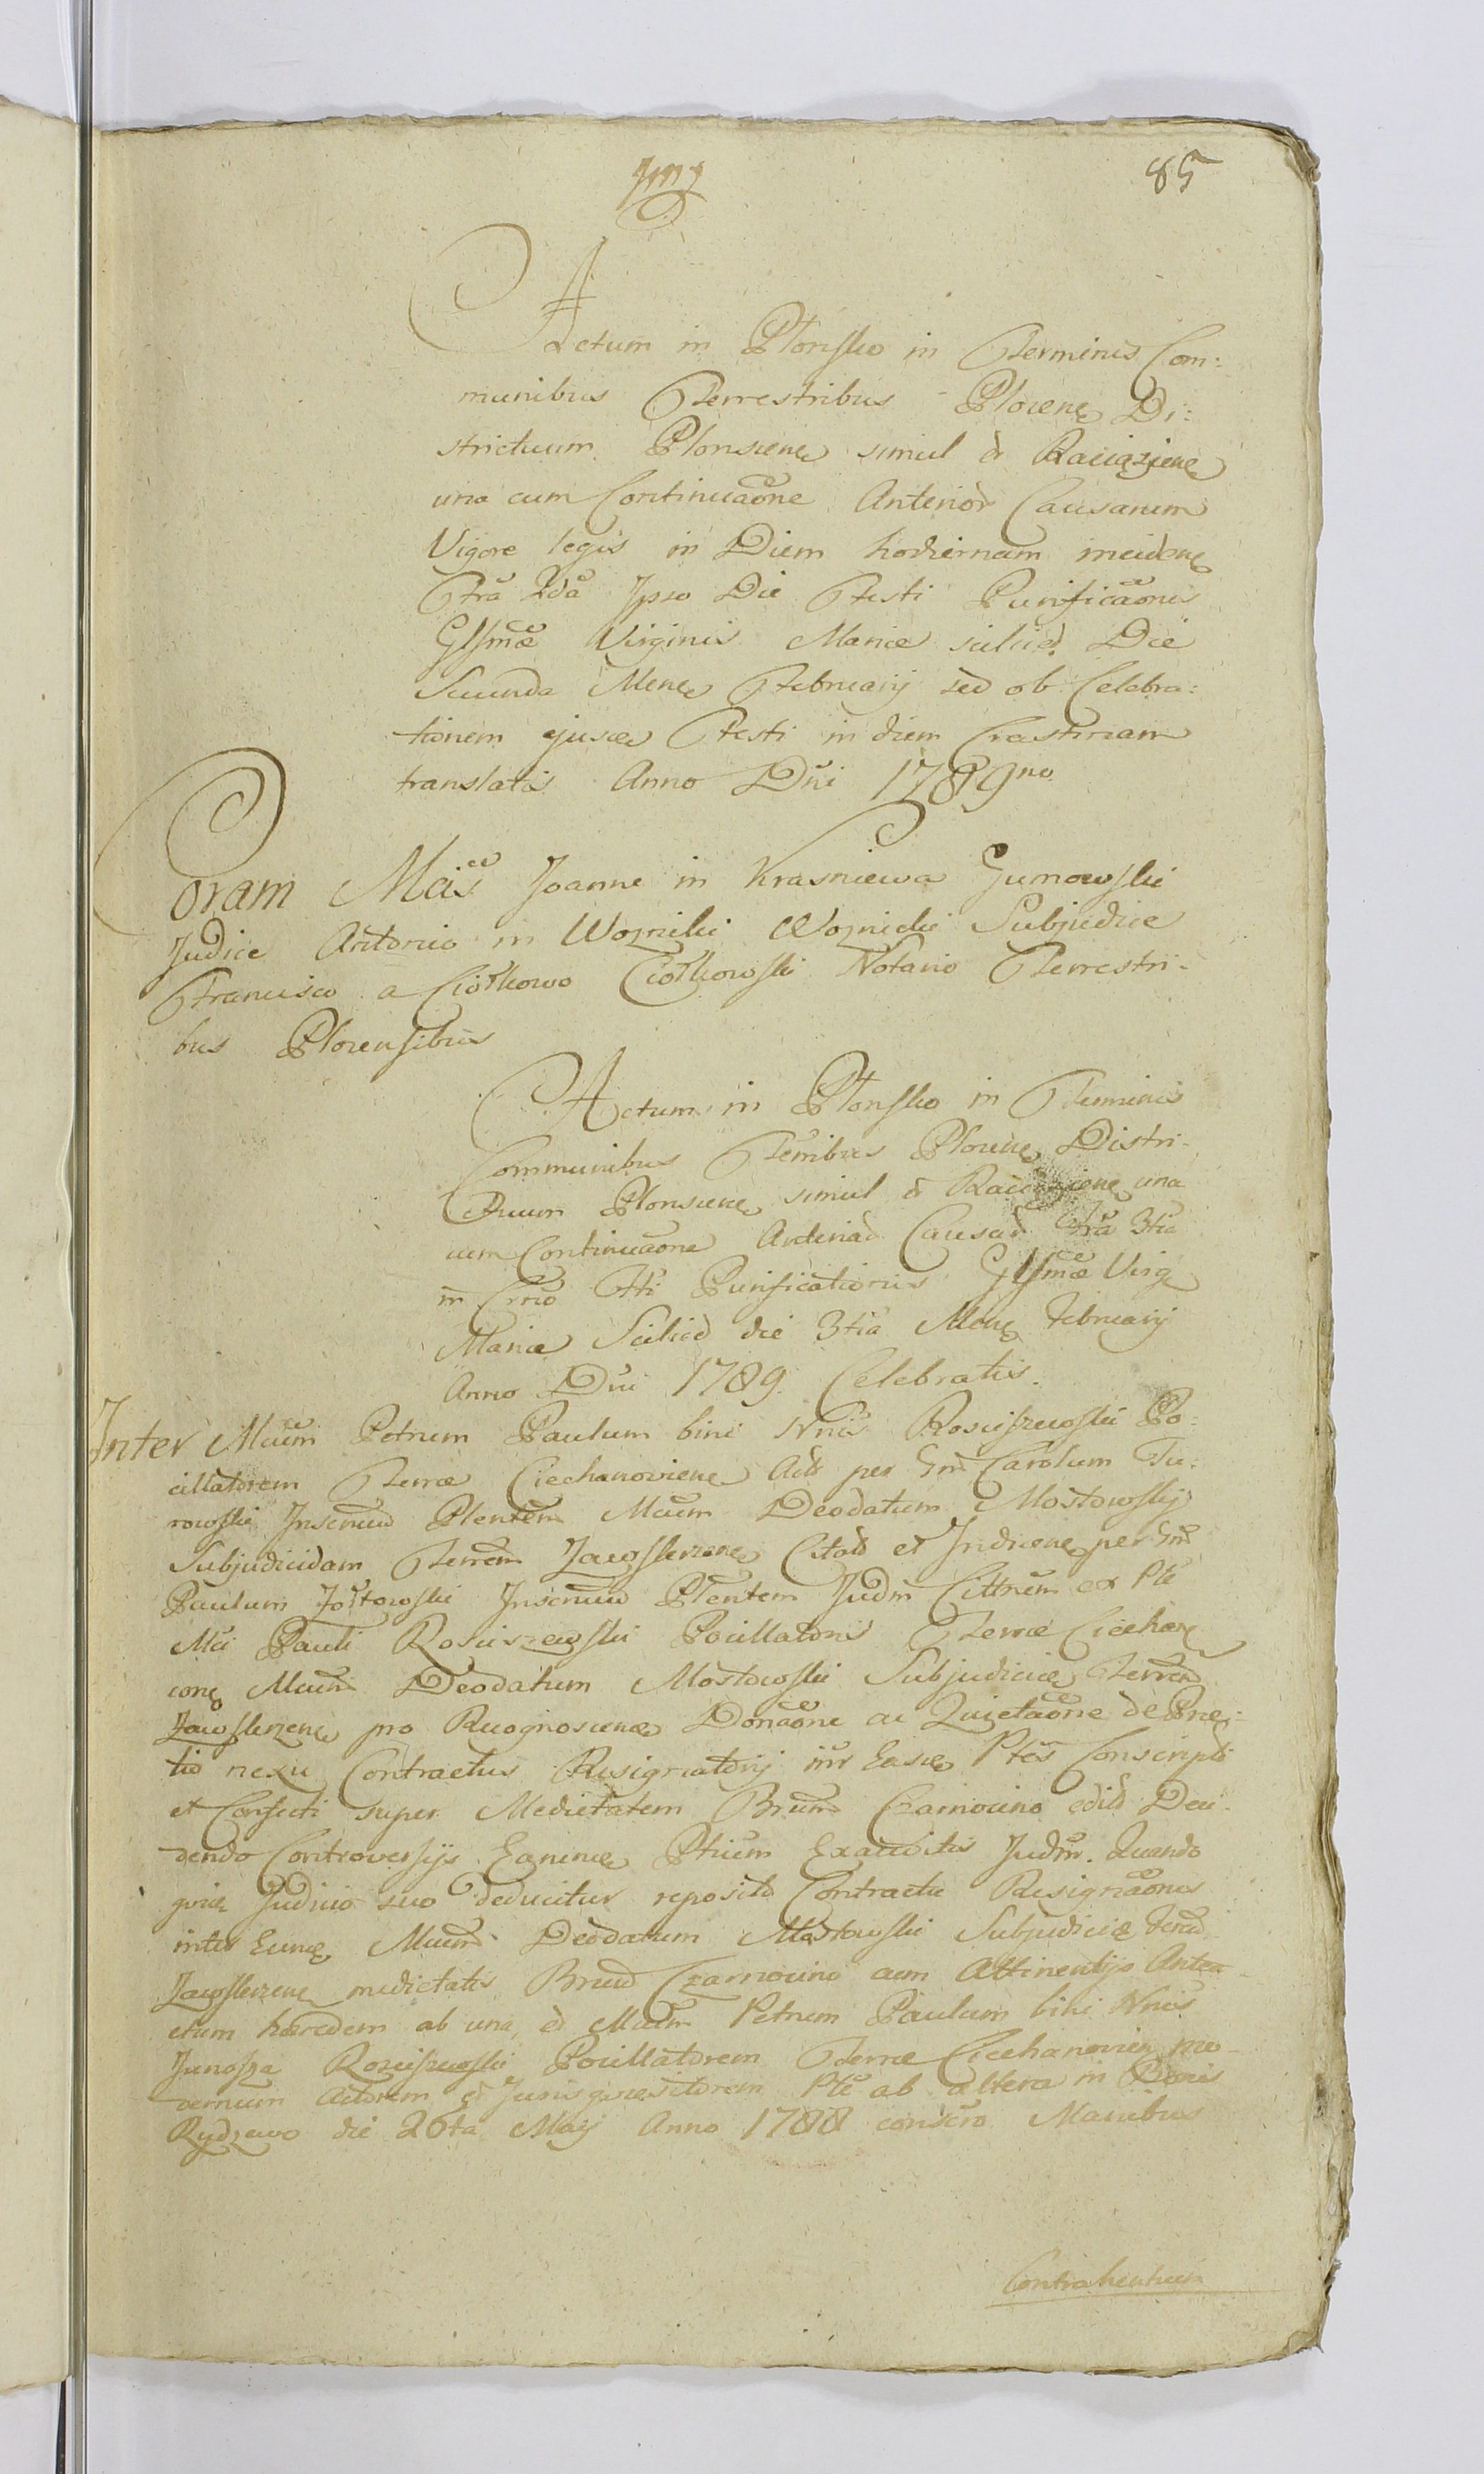 85
Actum in Płonsko in Terminis Com:
munibus Terrestribus Plocen Di:
strictuum Plonscen simul & Raciązien
una cum Continuaone Anterior Causarum
Vigore legis in Diem hodiernam inciden
Fra 2da Ipso Die Festi Purificaonis
Glsmæ Virginis Mariæ scilicet Die
Secunda Mens February sed ob Celebra:
tionem ejusd Festi in diem Crastinam
translatis Anno Dni 1789no
Coram Mcis Joanne in Krasniewa Gumowski
Judice Antonio in Wozniki Woznicki Subjudice
Francisco a Ciołkowo Ciołkowski Notario Terrestri-
bus Plocensibus
Actum in Płonsko in Terminis
Communibus Terribus Plocen Distri-
ctuum Plonscen simul & Raciązien una
cum Continuaone Anteriad Causad Fra 3tia
in Crno Fti Purificationis Glsmæ Virg
Mariæ Scilicd die 3tia Mens February
Anno Dni 1789. Celebratis.
Inter Mcum Petrum Paulum bini Nnis Rosciszewski Po:
cillatorem Terræ Ciechanovien Actd per Gnd Carolum Tu:
rowski Plentem Mcum Deodatum Mostowski
Subjudicidam Terrem Zawskrzen Citatd et Inducen per Gnd
Paulum Plentem Judm Cittrum ex Pte
Mci Pauli Rosciszewski Pocillatoris Terræ Ciechan
con Mcum Deodatum Mostowski Subjudicid Terren
Zawskrzen pro Recognoscend Donaone ac Quietaone de Præ:
tio nexu Contractus Resignatorij intr Easd Ptes Conscripti
et Confecti super Medietatem Brum Czarnocino edid Deci
dendo Controversijs Earumd Ptium Exauditis Judm. Quando
quid Judicio suo deducitur reposito Contractu Resignaonis
inter Eund Mcum Deodatum Mostowski Subjudicid
Zawskrzen medietatis Brud Czarnocino cum Attinentijs
hæredem ab una, & Mcum Petrum Paulum bini Nnis
Junosza Rosciszewski Pocillatorem Terræ Ciechanovien mo-
dernum Actorem & Juris quæsitorem Pte ab altera in Bonis
Rydzewo die 26ta Maij Anno 1788 conscro Manibus
Contrahentium